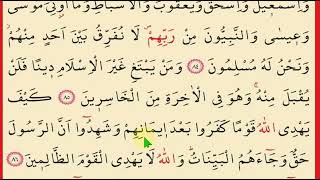 وَاِسْمٰع۪يلَ وَاِسْحٰقَ وَيَعْقُوبَ وَالْاَسْبَاطِ وَمَٓا اُو۫تِيَ مُوسٰى
وَع۪يسٰى وَالنَّبِيُّونَ مِنْ رَبِّهِمْۖ لَا نُفَرِّقُ بَيْنَ اَحَدٍ مِنْهُمْۘ
وَنَحْنُ لَهُ مُسْلِمُونَ ﴿٨٤﴾ وَمَنْ يَبْتَغِ غَيْرَ الْاِسْلَامِ د۪ينًا فَلَنْ
يُقْبَلَ مِنْهُۚ وَهُوَ فِي الْاٰخِرَةِ مِنَ الْخَاسِر۪ينَ ﴿٨٥﴾ كَيْفَ
يَهْدِي اللّٰهُ قَوْمًا كَفَرُوا بَعْدَ ا۪يمَانِهِمْ وَشَهِدُٓوا اَنَّ الرَّسُولَ
حَقٌّ وَجَٓاءَهُمُ الْبَيِّنَاتُۜ وَاللّٰهُ لَا يَهْدِي الْقَوْمَ الظَّالِم۪ينَ ﴿٨٦﴾